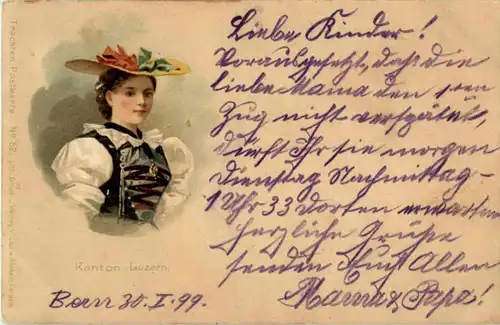 Liebe Kinder!
Vorausgesetzt, daß die
liebe Mama den 1ten
Zug nicht verspätet,
dürft Ihr sie morgen
Dienstag Nachmittag-
1 Uhr 33 dorten erwarten
herzliche Grüße
senden Euch Allen
Mama & Papa!
Kanton Luzern.
Bern 30. I. 99.
Trachten-Postkarte No 32